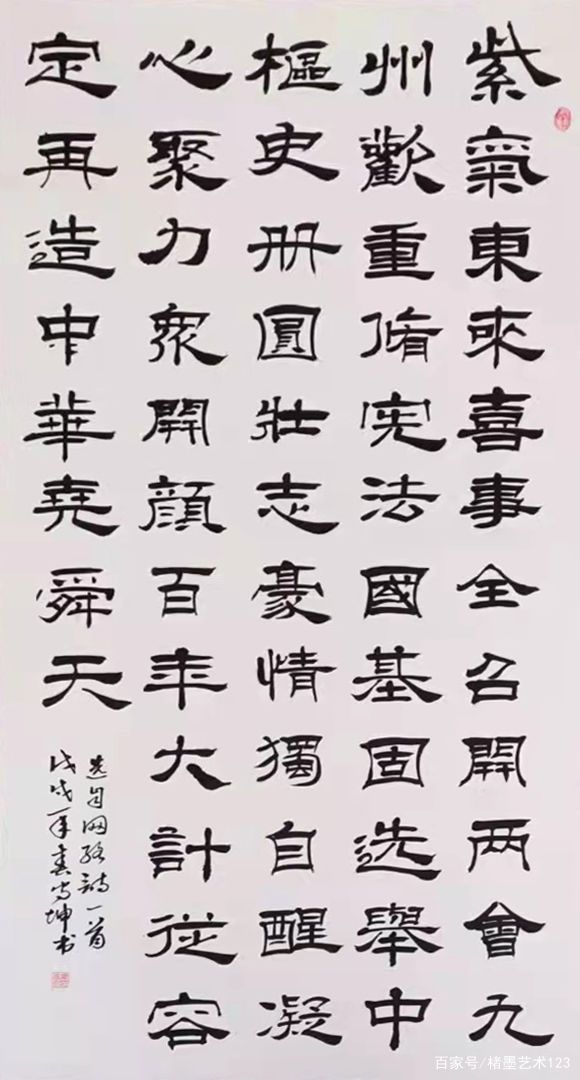 紫氣東來喜事全名開两會九
州歡重脩宪法國基固选舉中
樞史册圓壯志豪情獨自醒凝
心聚力眾開顔百年大計從容
定再造中華堯舜天
选自网络詩一首
戊戌年春守坤书
百家号/楮墨艺术123